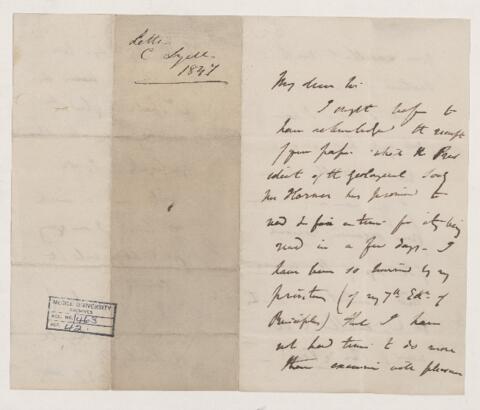 Letter
C Lyell
1847
McGILL UNIVERSITY
ARCHIVES
ACC. NO. 1463
REF. 42
My dear Sir
I ought before to
have acknowledged the receipt
of your paper which the Pres
ident of the Geological Socy
Mr Horner has promised to
read in a few days - I
have been so hurried by my
printers (of my 7th Edn. of
Principles) that I have
not had time to do more
than examine with pleasure